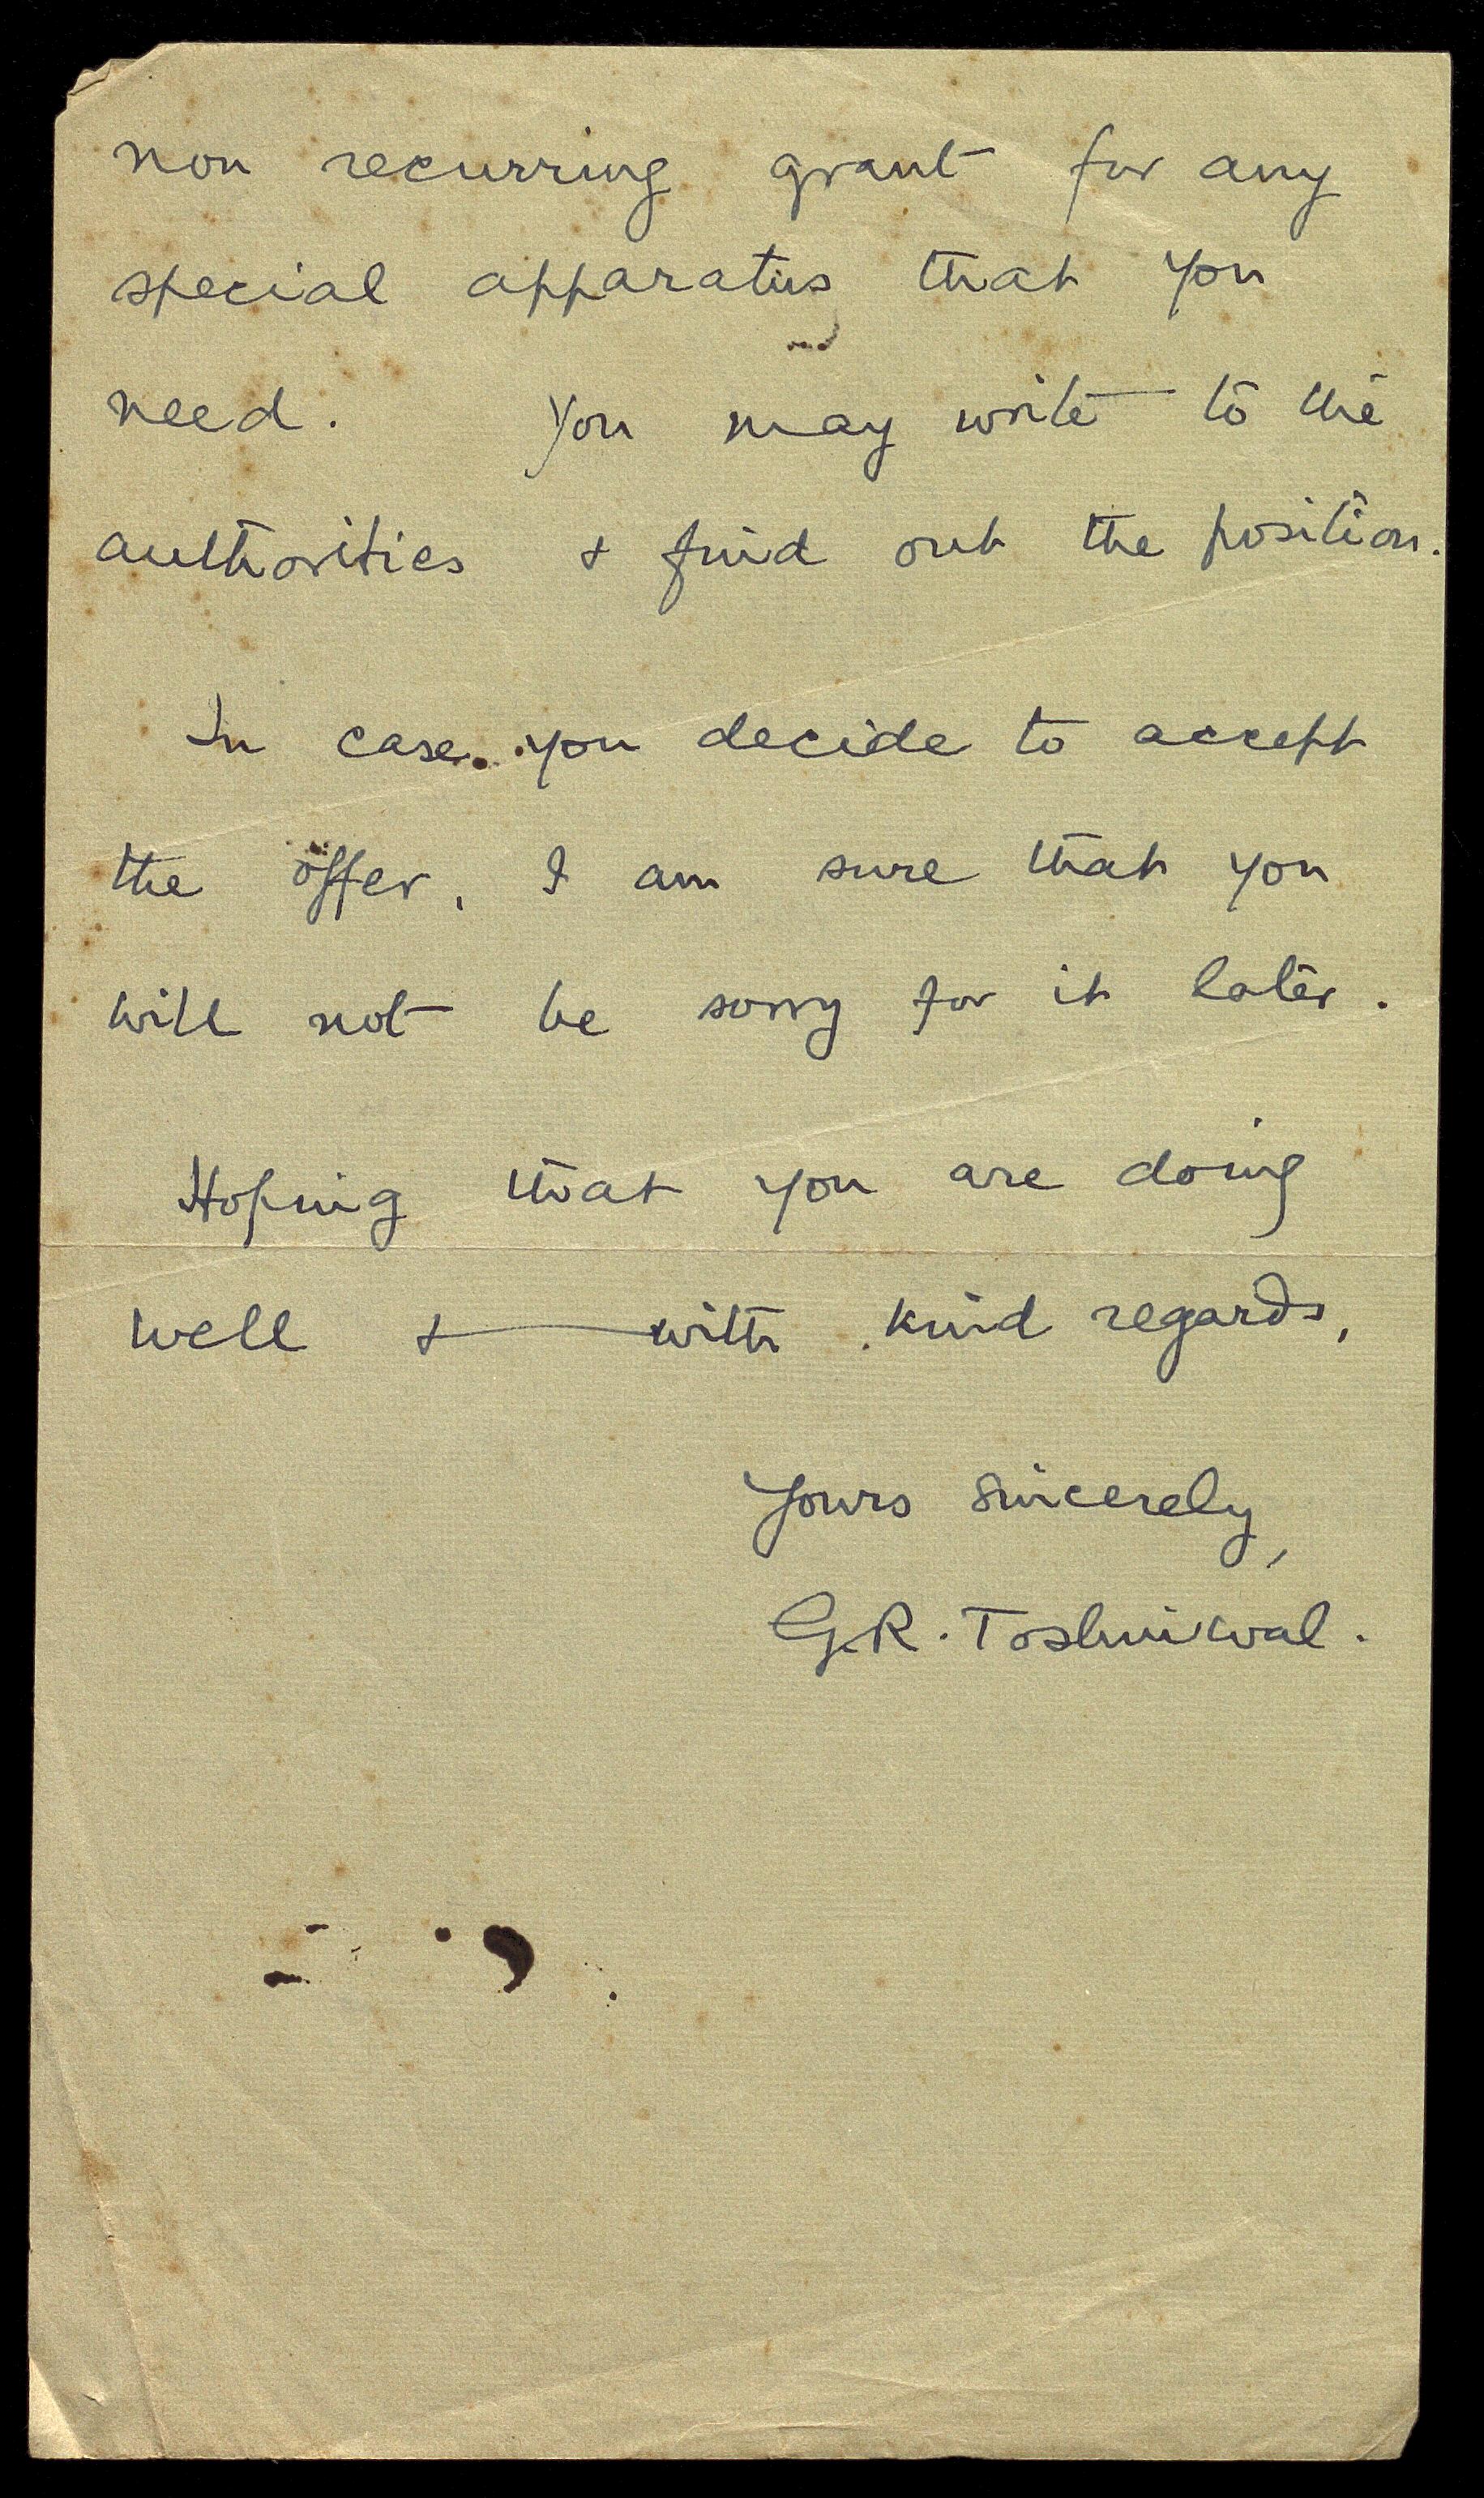 non recurring grant for any
special apparatus that you
need. You may write to the
authorities & find out the position.
In case you decide to accept
the offer, I am sure that you
will not be sorry for it later.
Hoping that you are doing
well & with kind regards,
Yours sincerely,
G.R. Toshniwal.